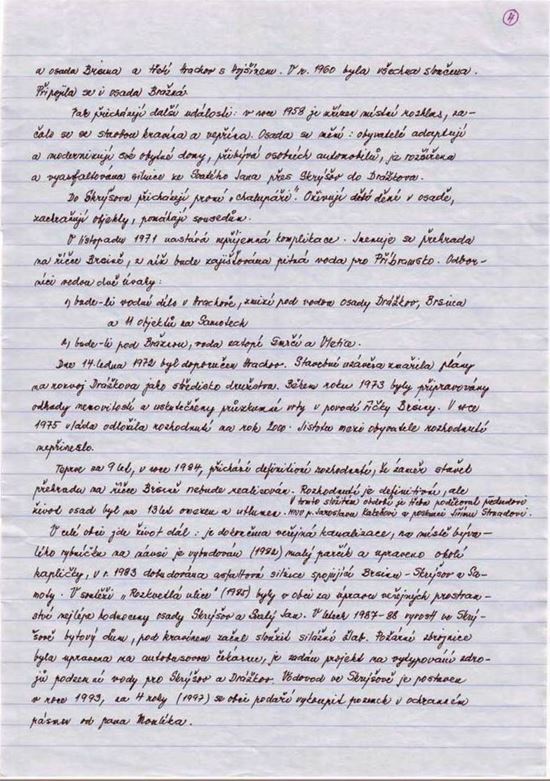 4
a osada Brsina a Htí Hrachov s Kojšínem. V r. 1960 byla všechna sloučena.
Připojila se i osada Brážná.
Pak přicházejí další události: v roce 1958 je zřízen místní rozhlas, za-
čalo se se stavbou kravína a vepřína. Osada se mění: obyvatelé adaptují
a modernizují své obytné domy, přibývá osobních automobilů, je rozšířena
a vyasfaltována silnice ze Svatého Jana přes Skrýšov do Drážkova.
Do Skrýšova přicházejí první "chalupáři". Oživují dětí dění v osadě,
zachraňují objekty, pomáhají sousedům.
V listopadu 1971 nastává nepříjemná komplikace. Jmenuje se přehrada
na říčce Brsině, z níž bude zajišťována pitná voda pro Příbramsko. Odbor-
níci vedou dvě úvahy:
1) bude-li vodní dílo v Hrachově, zmizí pod vodou osady Drážkov, Brsina
a 4 objektů na Samotech
2) bude-li pod Brážnou, voda zatopí Smrčí a Vletice.
Dne 14. ledna 1972 byl doporučen Hrachov. Stavební uzávěra zmařila plány
na rozvoj Drážkova jako střediska družstva. Během roku 1973 byly připravovány
odhady nemovitostí a uskutečněny průzkumné vrty v povodí říčky Brsiny. V roce
1975 vláda odložila rozhodnutí na rok 2000. Jistota mezi obyvatele rozhodnutí
nepřineslo.
Teprve za 9 let, v roce 1984, přichází definitivní rozhodnutí, že záměr stavět
přehradu na říčce Brsině nebude realizován. Rozhodnutí je definitivní, ale
život osad byl na 13 let omezen a utlumen. V tomto složitém období je třeba poděkovat předsedovi
MNV p. Jaroslavu Kateřovi a poslanci Jiřímu Stradovi.
V celé obci jde život dál: je dokončena veřejná kanalizace, na místě býva-
lého rybníčku na návsi je vybudován (1982) malý parčík a upraveno okolí
kapličky, v r. 1983 dobudována asfaltová silnice spojující Brsinu - Skrýšov a Sa-
moty. V soutěži "Rozkvetlá ulice" (1985) byly v obci za úpravu veřejných prostran-
ství nejlépe hodnoceny osady Skrýšov a Svatý Jan. V letech 1987-88 vyrostl ve Skrý-
šově bytový dům, pod kravínem začne sloužit silážní žlab. Požární zbrojnice
byla upravena na autobusovou čekárnu, je zadán projekt na vytypování zdro-
jů podzemní vody pro Skrýšov a Drážkov. Vodovod ve Skrýšově je postaven
v roce 1993, za 4 roky (1997) se obci podaří vykoupit pozemek v ochranném
pásmu od pana